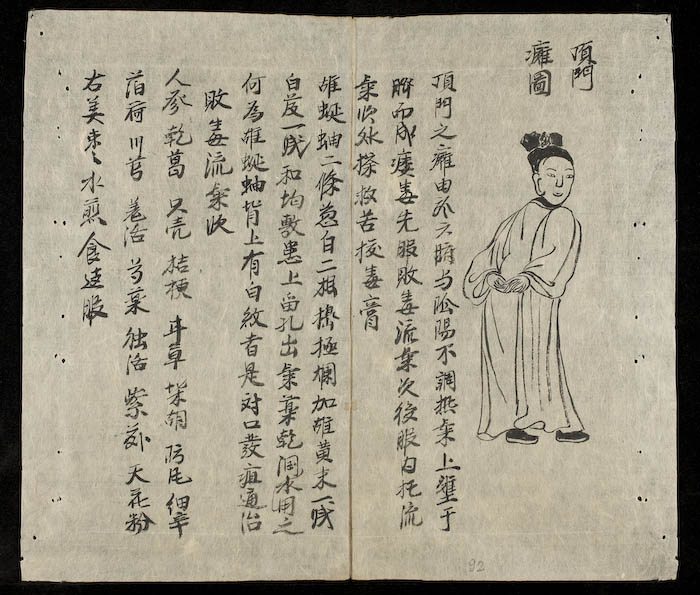 頂門
癰圖
頂門之癰由於六腑与陰陽不調热氣上壅于
而成瘘毒先服敗毒流氣次後服內托流
氣飲外搽救苦拔毒膏
雄蜒蚰二條葱白二根擂極爛加雄黄末一戋
白芨一戋和均敷患上留孔出氣藥乾潤水用之
何為雄蜒蚰背上有白紋者是对口發疽通治
敗毒流氣飲
人參 乾葛 只壳 桔梗 甘草 柴胡 防风 細辛
泊荷 川芎 羌活 芍藥 独活 紫苏 天花粉
右姜枣水煎食遠服
92